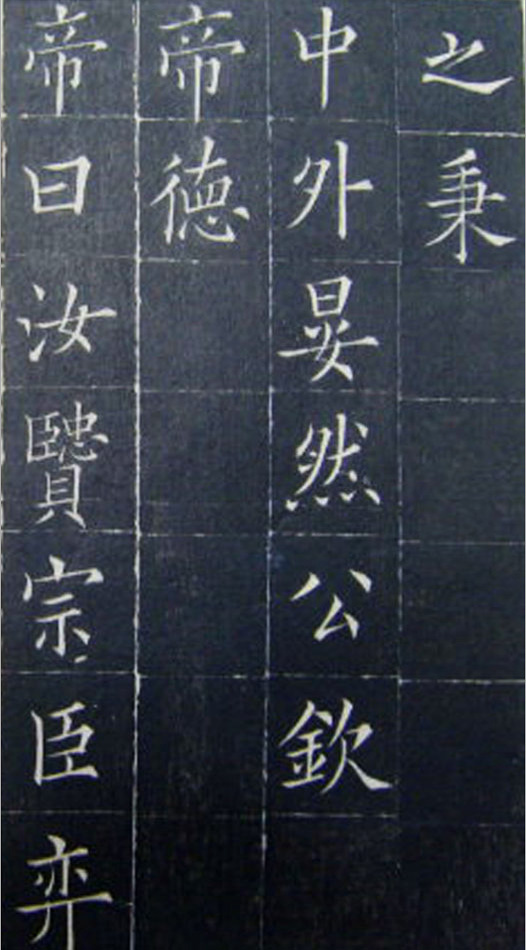 之秉
中外晏然公欽
帝徳
帝曰汝贒宗臣弈